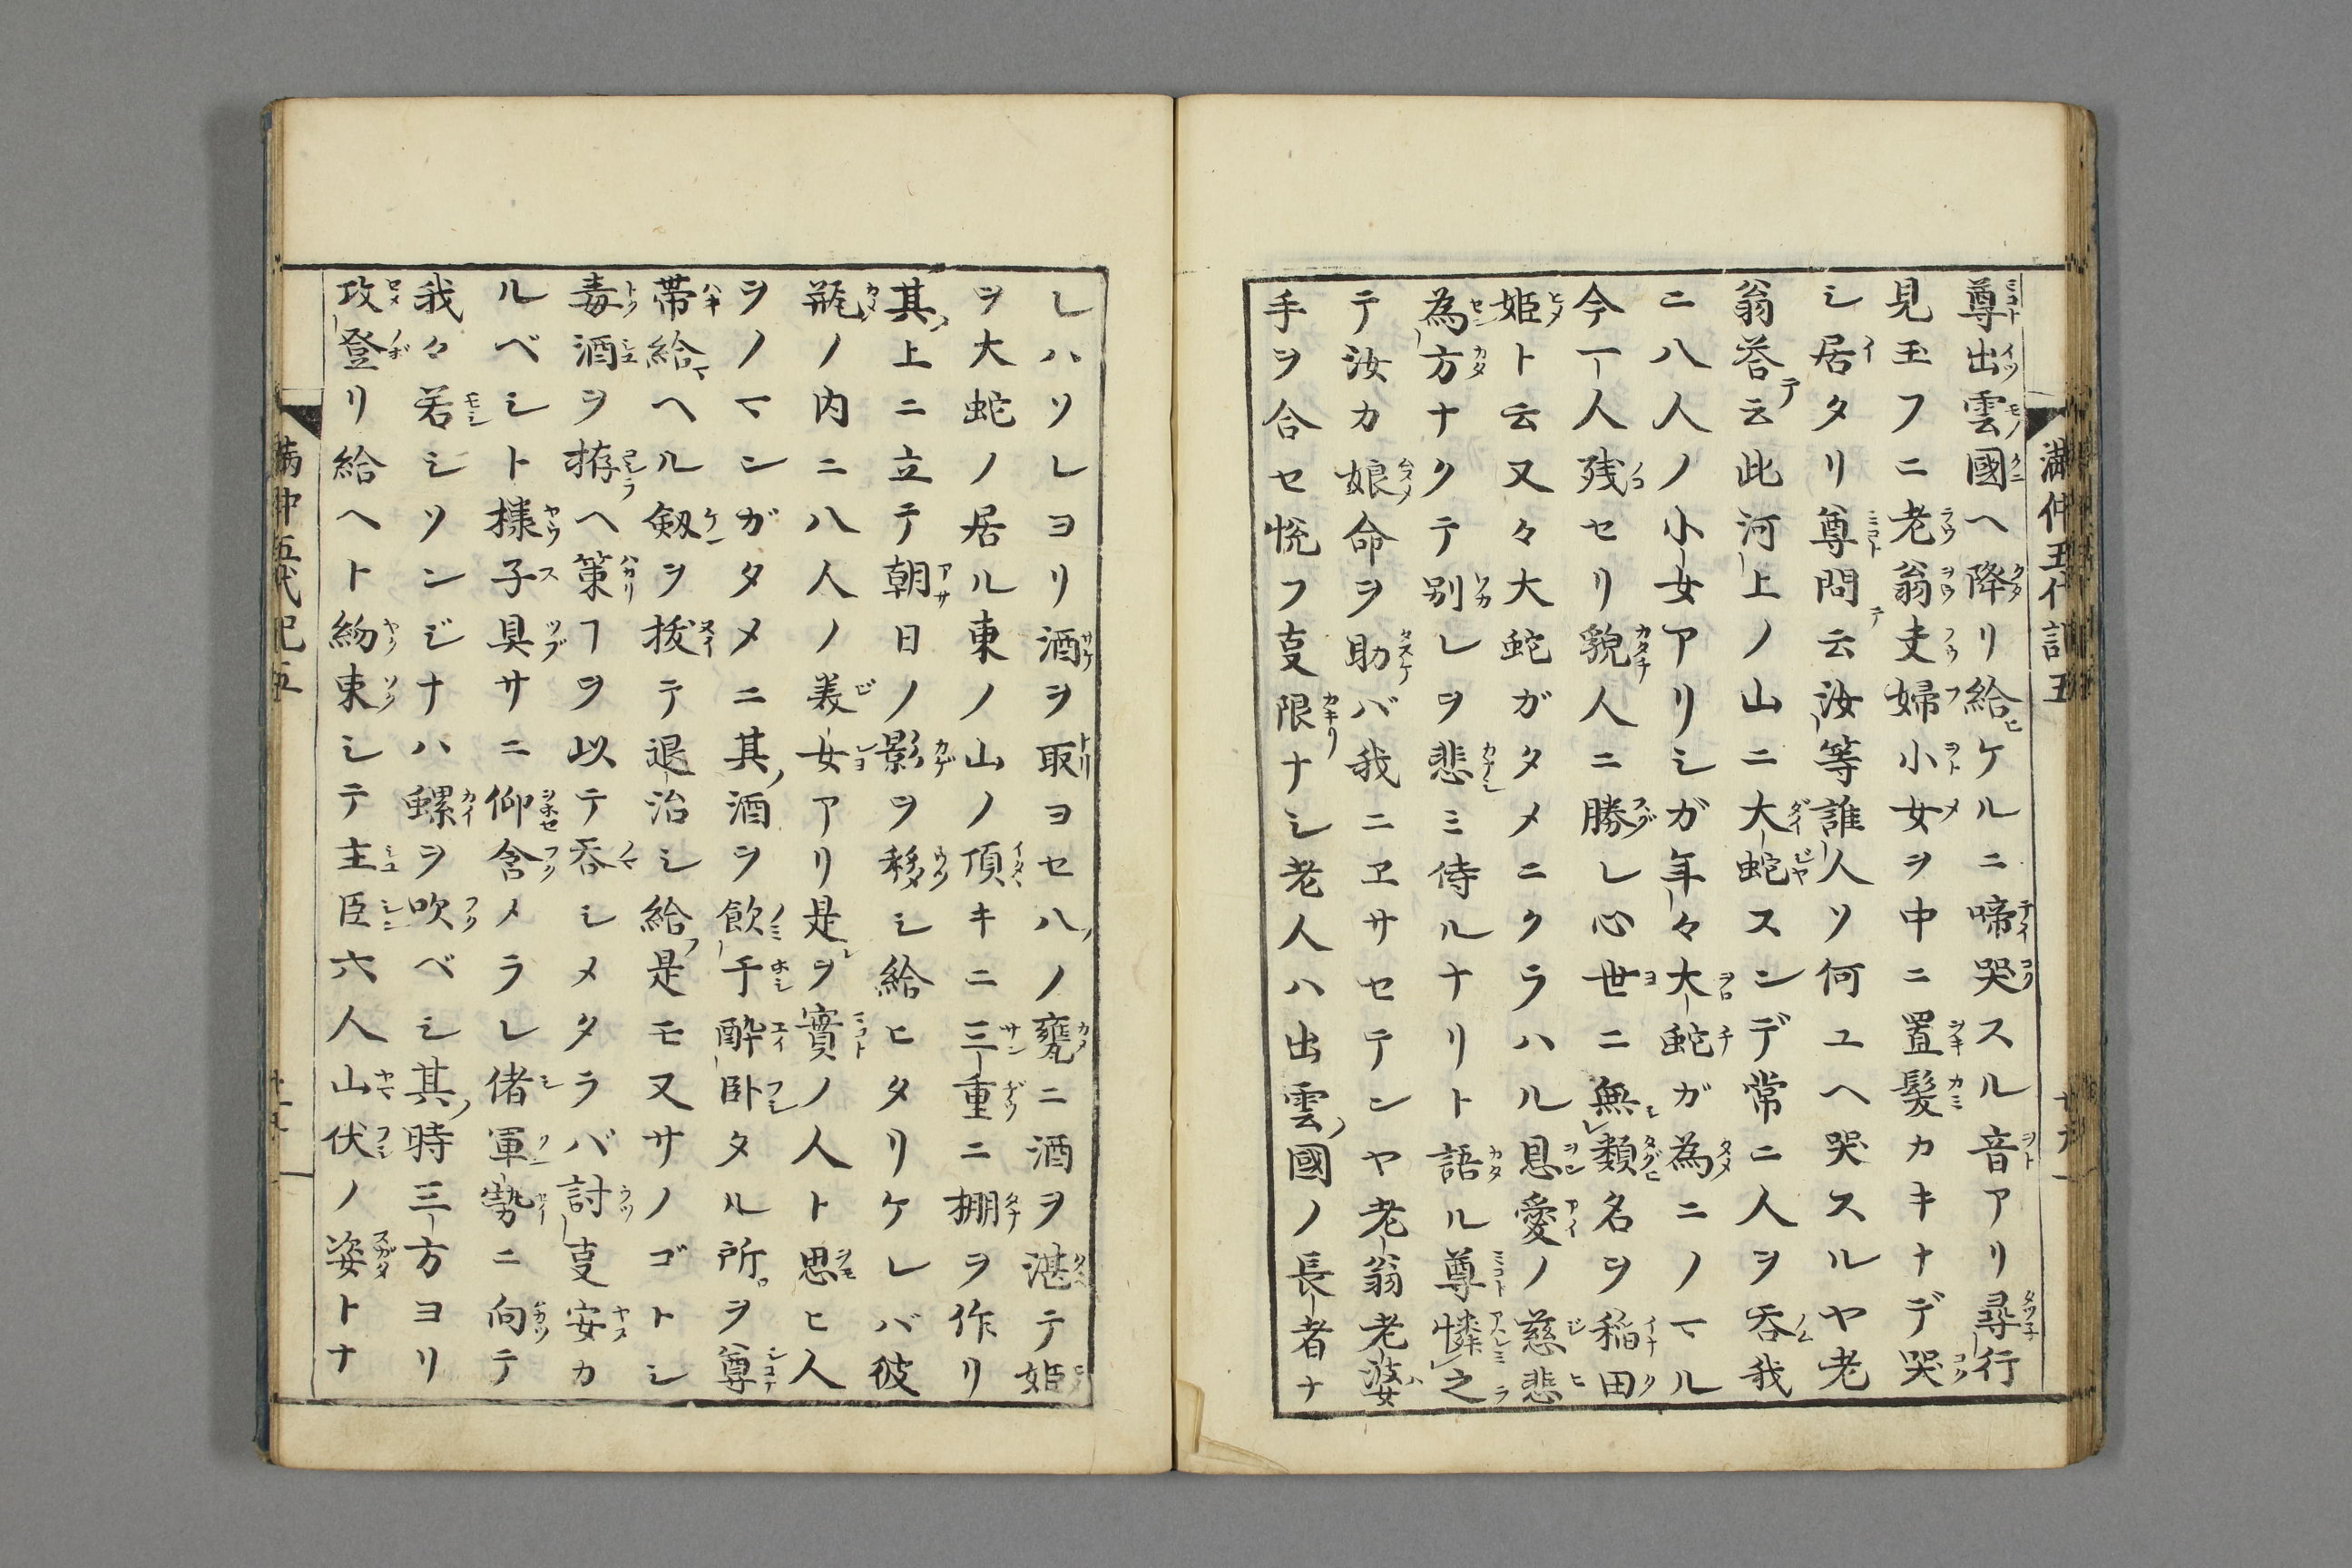 満仲五代記五
尊出雲國ヘ降リ給ヒケルニ啼哭スル音アリ尋行
見玉フニ老翁夫婦小女ヲ中ニ置髪カキナデ哭
シ居タリ尊問テ云汝等誰人ソ何ユヘ哭スルヤ老
翁答テ云此河上ノ山ニ大蛇スンデ常ニ人ヲ呑我
ニ八人ノ小女アリシガ年々大蛇ガ為ニノマル
今一人残セリ貌人ニ勝レ心世ニ無類名ヲ稲田
姫ト云又々大蛇ガタメニクラハル恩愛ノ慈悲
為方ナクテ別レヲ悲ミ侍ルナリト語ル尊憐之
テ汝カ娘命ヲ助バ我ニヱサセテンヤ老翁老婆
手ヲ合セ悦フ支限ナシ老人ハ出雲ノ國ノ長者ナ
レハソレヨリ酒ヲ取ヨセ八ノ甕ニ酒ヲ湛テ姫
ヲ大蛇ノ居ル東ノ山ノ頂キニ三重ニ棚ヲ作リ
其ノ上ニ立テ朝日ノ影ヲ移シ給ヒタリケレバ彼
瓶ノ内ニ八人ノ美女アリ是ヲ實ノ人ト思ヒ人
ヲノマンガタメニ其ノ酒ヲ飲干酔臥タル所ヲ尊
帯給ヘル劔ヲ抜テ退治シ給フ是モ又サノゴトシ
毒酒ヲ拵ヘ策ヿヲ以テ呑シメタラバ討支安カ
ルベシト様子具サニ仰含メラレ偖軍勢ニ向テ
我々若シソンジナハ螺ヲ吹ベシ其ノ時三方ヨリ
攻登リ給ヘト約束シテ主臣六人山伏ノ姿トナ
満仲五代記五